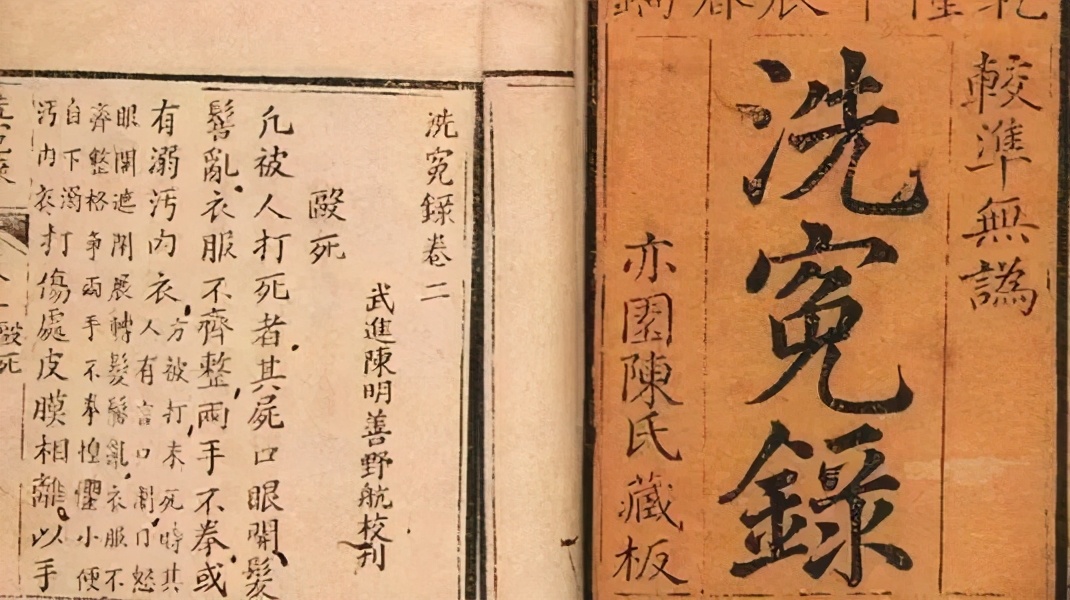 較準無譌
洗寃錄
亦園陳氏藏板
洗寃錄卷二
武進陳明善野航校刊
毆死
凢被人打死者其屍口眼開髮
髻亂衣服不齊整兩手不拳或
有溺汚內衣方被打未死時其
人有言口鬭口怒
眼開遮閉展轉髮髻亂衣服不
齊整格爭兩手不拳惶懼小便
自下溺
汚內衣打傷處皮膜相離以手
毆死